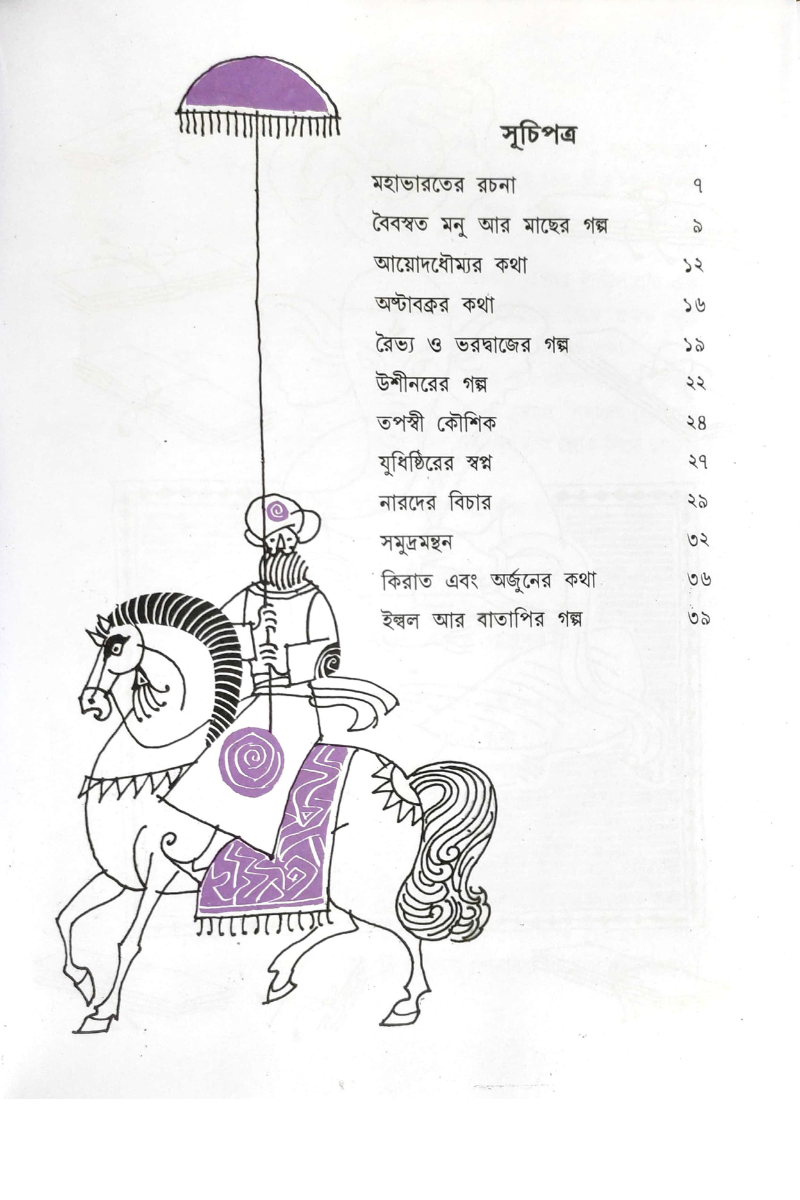 সূচিপত্র
মহাভারতের রচনা ৭
বৈবস্বত মনু আর মাছের গল্প ৯
আয়োদধৌম্যর কথা ১২
অষ্টাবক্রর কথা ১৬
রৈভ্য ও ভরদ্বাজের গল্প ১৯
উশীনরের গল্প ২২
তপস্বী কৌশিক ২৪
যুধিষ্ঠিরের স্বপ্ন ২৭
নারদের বিচার ২৯
সমুদ্রমন্থন ৩২
কিরাত এবং অর্জুনের কথা ৩৬
ইল্বল আর বাতাপির গল্প ৩৯